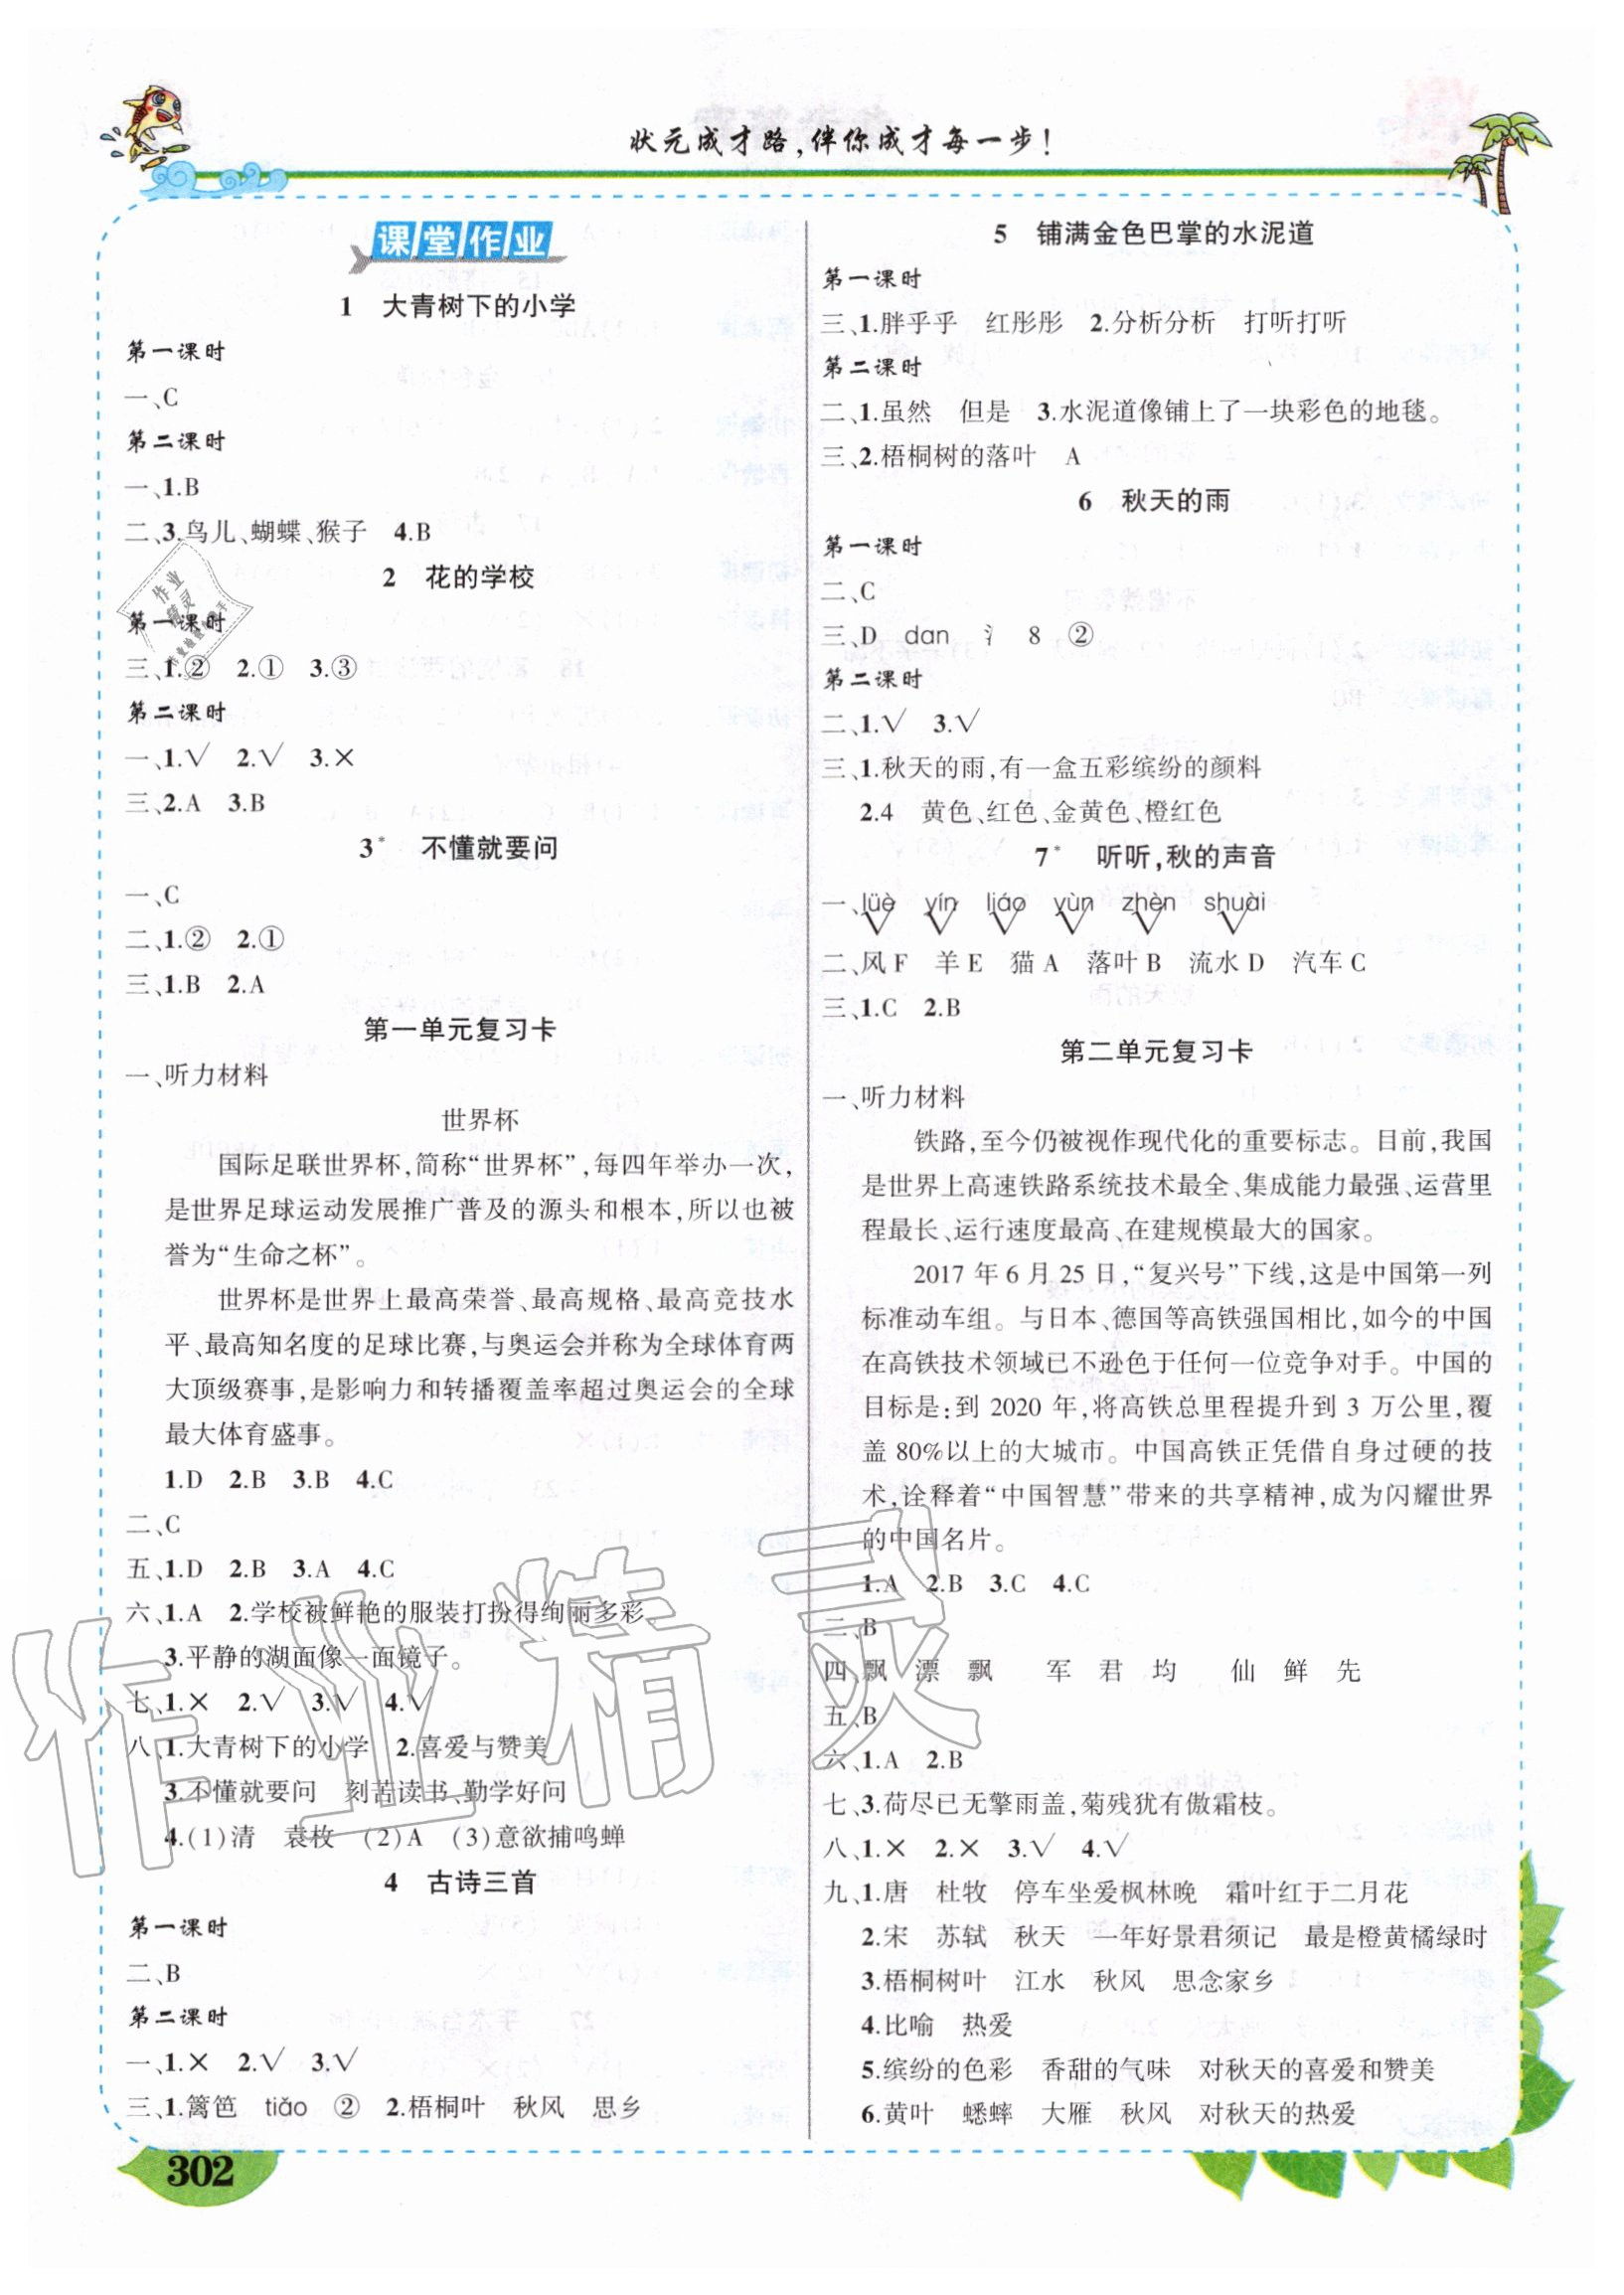 状元成才路,伴你成才每一步!
课堂作业
1 大青树下的小学
第一课时
一、C
第二课时
一、1.B
二、3.鸟儿、蝴蝶、猴子 4.B
2 花的学校
第一课时
三、1.② 2.① 3.③
第二课时
一、1.√ 2.√ 3.×
三、2.A 3.B
3* 不懂就要问
一、C
二、1.② 2.①
三、1.B 2.A
第一单元复习卡
一、听力材料
世界杯
国际足联世界杯,简称“世界杯”,每四年举办一次,
是世界足球运动发展推广普及的源头和根本,所以也被
誉为“生命之杯”。
世界杯是世界上最高荣誉、最高规格、最高竞技水
平、最高知名度的足球比赛,与奥运会并称为全球体育两
大顶级赛事,是影响力和转播覆盖率超过奥运会的全球
最大体育盛事。
1.D 2.B 3.B 4.C
二、C
五、1.D 2.B 3.A 4.C
六、1.A 2.学校被鲜艳的服装打扮得绚丽多彩。
3.平静的湖面像一面镜子。
七、1.× 2.√ 3.√ 4.√
八、1.大青树下的小学 2.喜爱与赞美
3.不懂就要问 刻苦读书、勤学好问
4.(1)清 袁枚 (2)A (3)意欲捕鸣蝉
4 古诗三首
第一课时
二、B
第二课时
一、1.× 2.√ 3.√
三、1.篱笆 tiǎo ② 2.梧桐叶 秋风 思乡
5 铺满金色巴掌的水泥道
第一课时
三、1.胖乎乎 红彤彤 2.分析分析 打听打听
第二课时
二、1.虽然 但是 3.水泥道像铺上了一块彩色的地毯。
三、2.梧桐树的落叶 A
6 秋天的雨
第一课时
二、C
三、D dan 氵 8 ②
第二课时
二、1.√ 3.√
三、1.秋天的雨,有一盒五彩缤纷的颜料
2.4 黄色、红色、金黄色、橙红色
7* 听听,秋的声音
一、lüè yín liáo yùn zhèn shuài
√ √ √ √ √ √
二、风F 羊E 猫A 落叶B 流水D 汽车C
三、1.C 2.B
第二单元复习卡
一、听力材料
铁路,至今仍被视作现代化的重要标志。目前,我国
是世界上高速铁路系统技术最全、集成能力最强、运营里
程最长、运行速度最高、在建规模最大的国家。
2017年6月25日,“复兴号”下线,这是中国第一列
标准动车组。与日本、德国等高铁强国相比,如今的中国
在高铁技术领域已不逊色于任何一位竞争对手。中国的
目标是:到2020年,将高铁总里程提升到3万公里,覆
盖80%以上的大城市。中国高铁正凭借自身过硬的技
术,诠释着“中国智慧”带来的共享精神,成为闪耀世界
的中国名片。
1.A 2.B 3.C 4.C
二、B
四、飘 漂 飘 军 君 均 仙 鲜 先
五、B
六、1.A 2.B
七、3.荷尽已无擎雨盖,菊残犹有傲霜枝。
八、1.× 2.× 3.√ 4.√
九、1.唐 杜牧 停车坐爱枫林晚 霜叶红于二月花
2.宋 苏轼 秋天 一年好景君须记 最是橙黄橘绿时
3.梧桐树叶 江水 秋风 思念家乡
4.比喻 热爱
5.缤纷的色彩 香甜的气味 对秋天的喜爱和赞美
6.黄叶 蟋蟀 大雁 秋风 对秋天的热爱
302
作业精灵
作业精灵